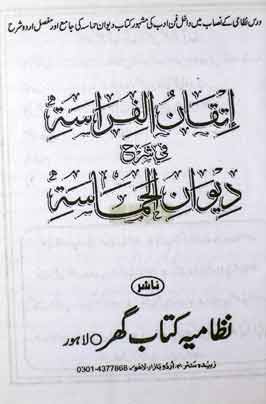 درس نظامی کے نصاب میں داخل فن ادب کی مشہور کتاب دیوان حماسہ کی جامع اور مفصل اردو شرح
اِتقانُ الفِراسَةِ
فِی شرح
دِیوَانِ الحَمَاسَةِ
ناشر
نظامیہ کتاب گھر لاہور
زبیدہ سنٹر ۴۰ اردو بازار لاہور 0301-4377868